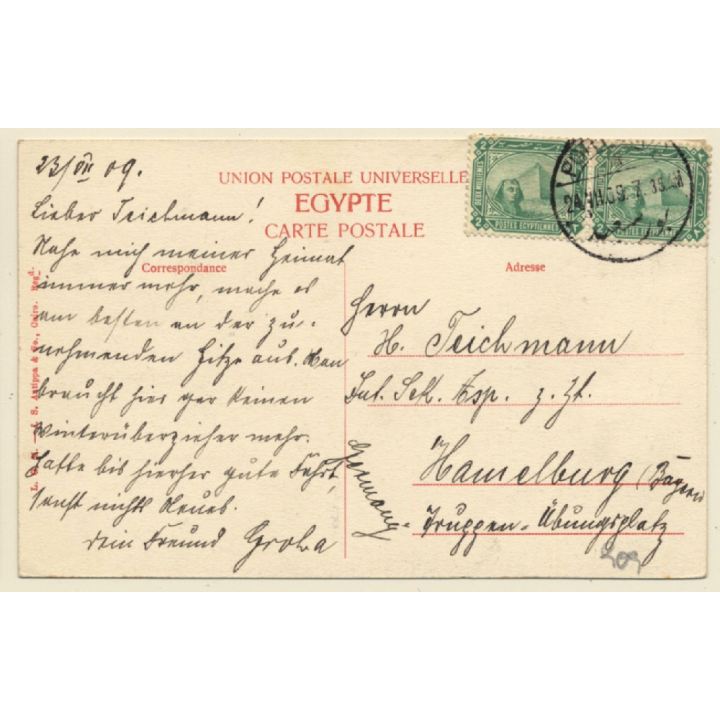 23/VII 09.
UNION POSTALE UNIVERSELLE
EGYPTE
CARTE POSTALE
Correspondance
Adresse
Lieber Teichmann!
Nahe mich meiner Heimat
immer mehr, mache es
am besten an der zu-
nehmenden Hitze aus. Man
braucht hier gar keinen
Winterüberzieher mehr.
Hatte bis hierher gute Fahrt,
sonst nichts Neues.
Dein Freund Grota
Herrn
H. Teichmann
Int. Sekr. Asp. z. Zt.
Hamelburg (Bayern
Truppen-Übungsplatz
Germany
DEUX MILLIEMES
POSTES EGYPTIENNES
2
24 VII.09.
S. Antippa & Co., Cairo. Regd.
309